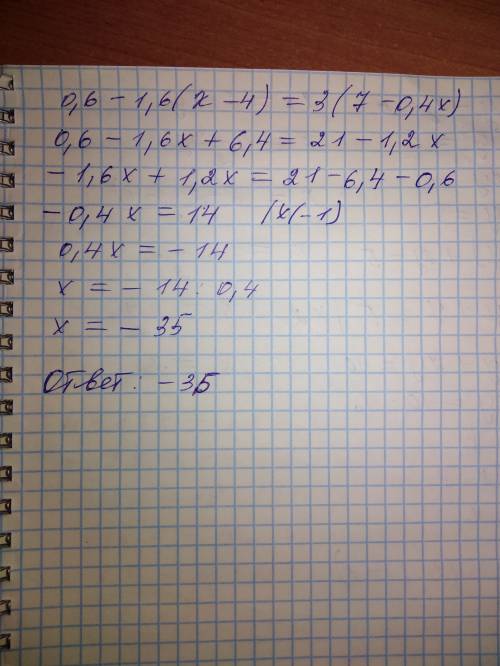 0,6 - 1,6(x - 4) = 3(7 - 0,4x)
0,6 - 1,6x + 6,4 = 21 - 1,2x
- 1,6x + 1,2x = 21 - 6,4 - 0,6
- 0,4x = 14 |x(-1)
0,4x = - 14
x = - 14 : 0,4
x = - 35
Ответ: - 35